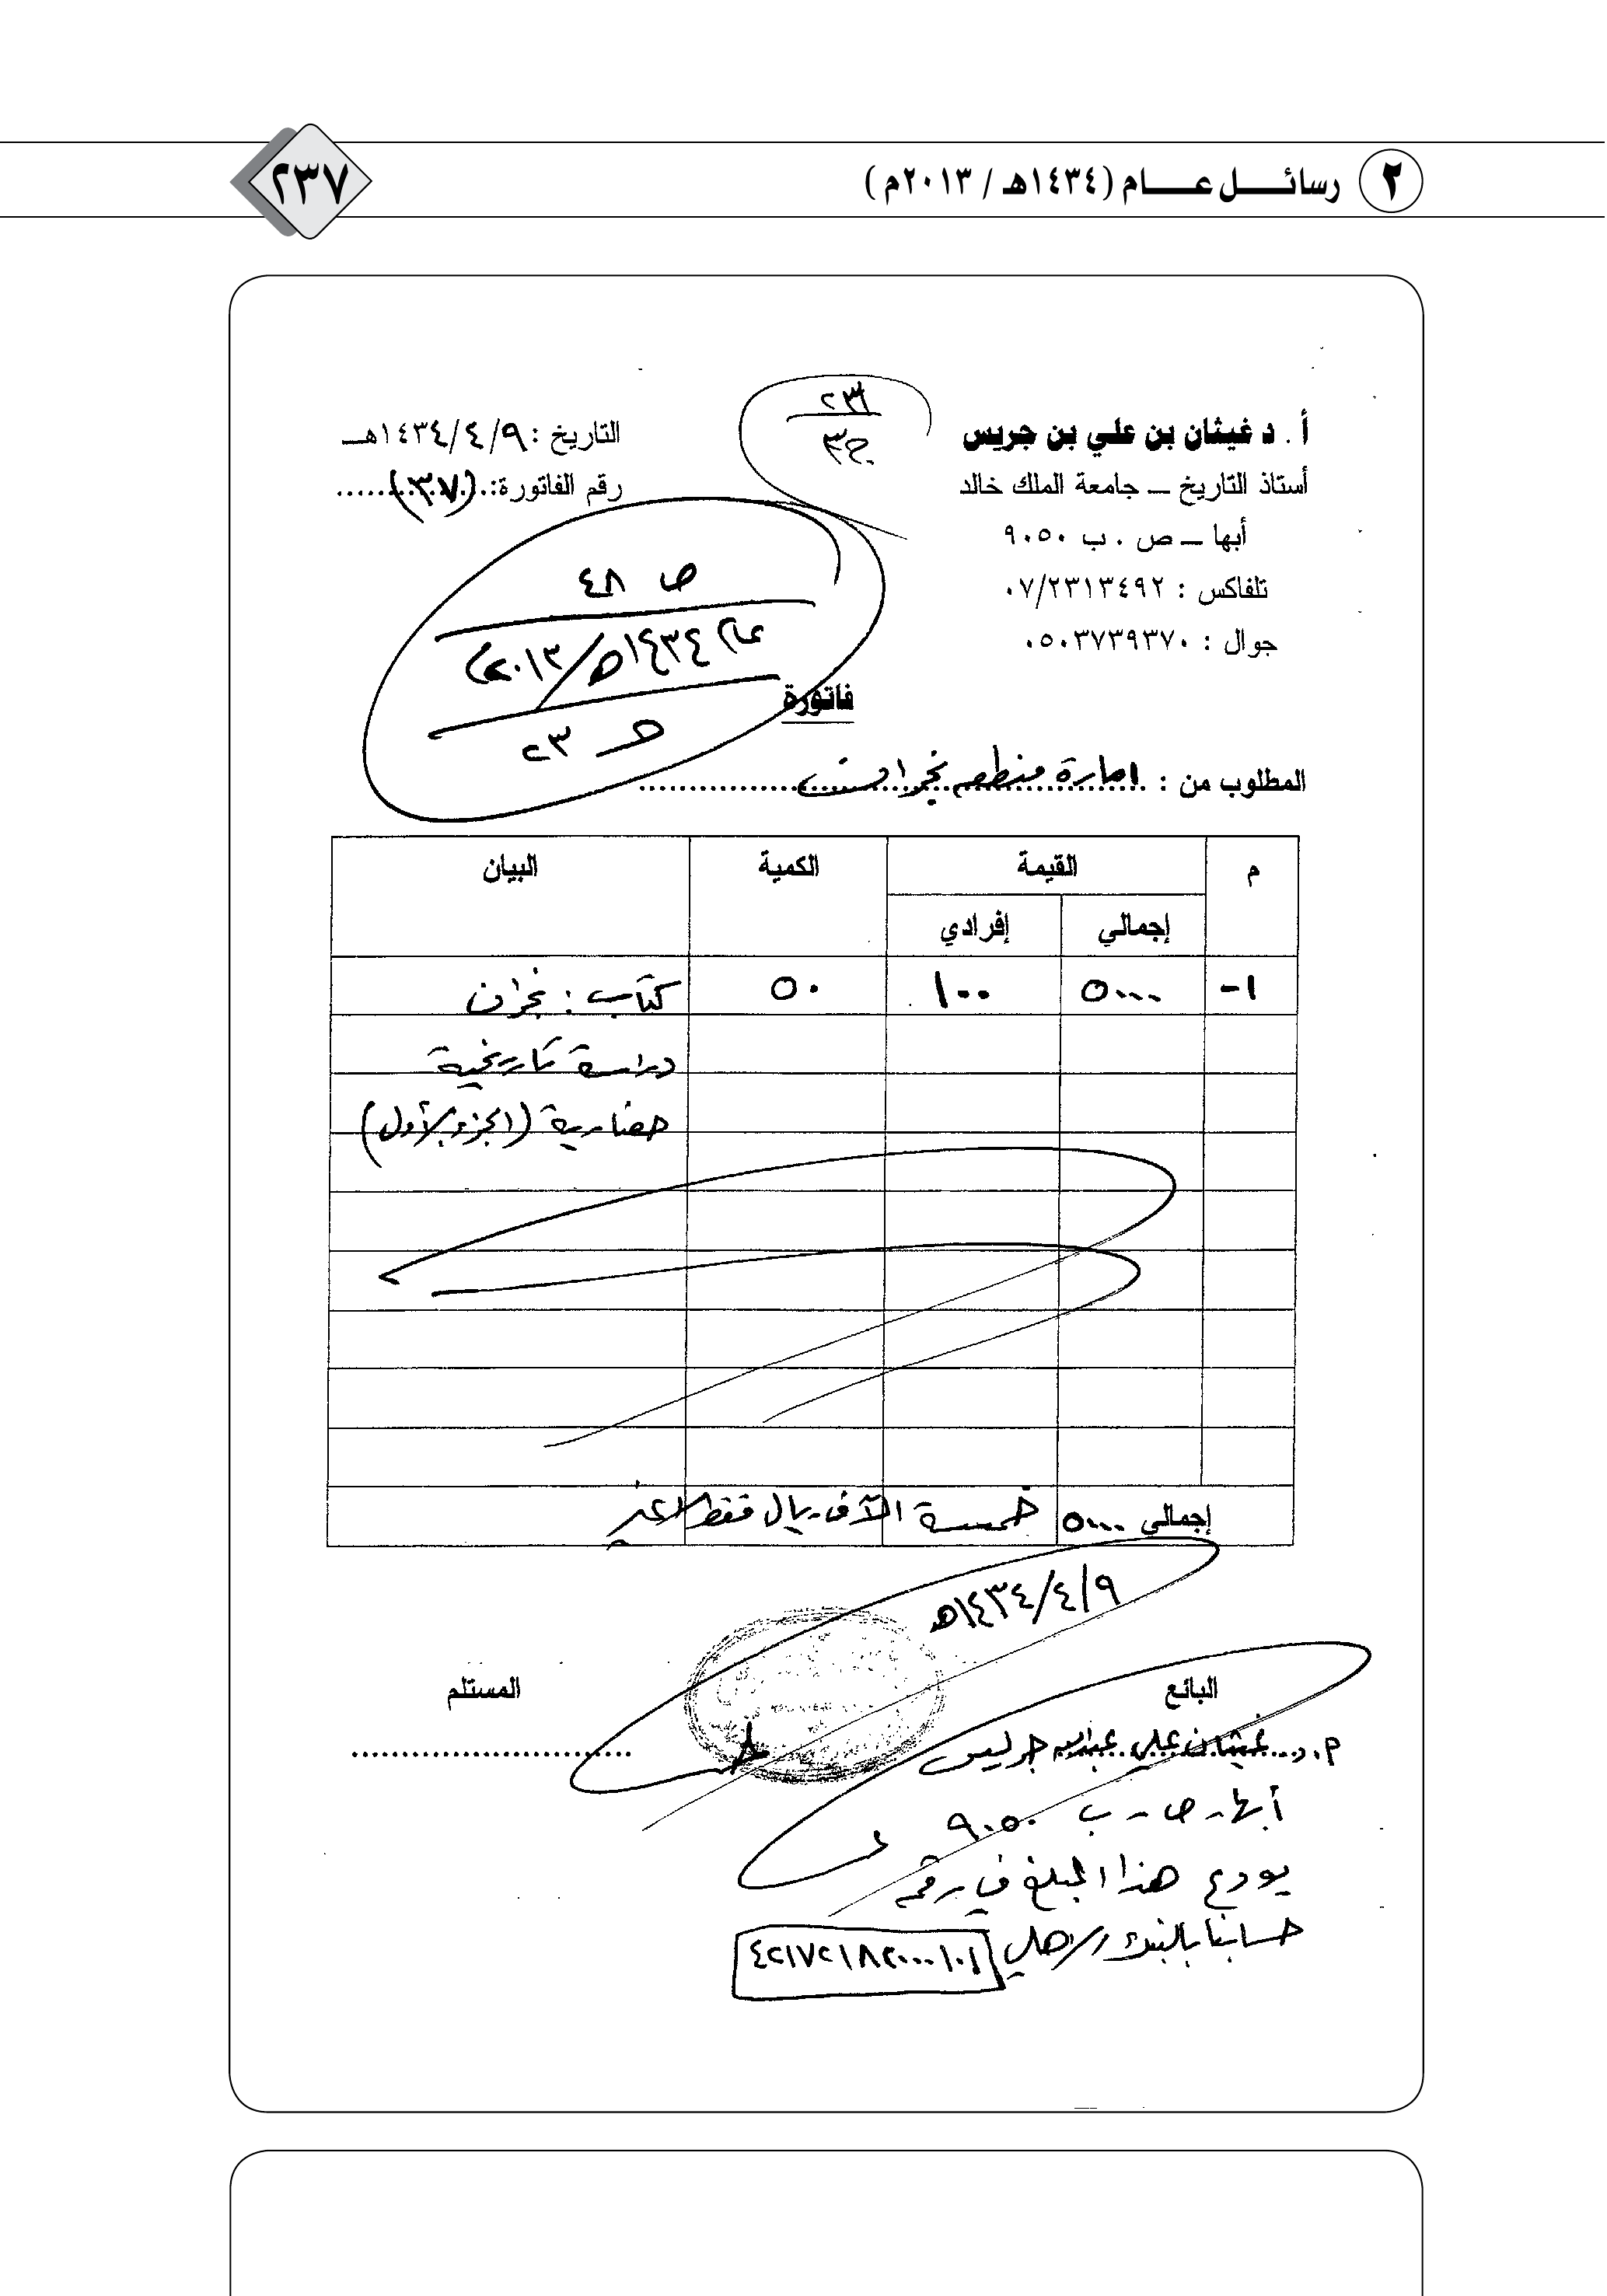 ٢ رسائل عام (١٤٣٤هـ / ٢٠١٣م)
٢٣٧
أ . د غيثان بن علي بن جريس
أستاذ التاريخ – جامعة الملك خالد
أبها – ص . ب ٩٠٥٠
تلفاكس : ٠٧/٢٣١٣٤٩٢
جوال : ٠٥٠٣٧٣٩٣٧٠
التاريخ : ١٤٣٤/٤/٩هـ
رقم الفاتورة: (٣٧)
ص ٤٨
عام ١٤٣٤هـ/٢٠١٣م
ح ٢٣
فاتورة
المطلوب من : امارة منطقه نجران
م القيمة الكمية البيان
إجمالي إفرادي
١- ٥٠٠٠ ١٠٠ ٥٠ كتاب : نجران
دراسة تاريخية
حضارية (الجزء الأول)
إجمالي ٥٠٠٠ خمسة الآف ريال فقط لاغير
١٤٣٤/٤/٩هـ
البائع
المستلم
أ.د. غيثان علي عبدالله جريس
أبها - ص - ب ٩٠٥٠
يودع هذا المبلغ في رقم
حسابنا بالبنك الأهلي ٤٢١٧٢١٨٢٠٠٠١٠١